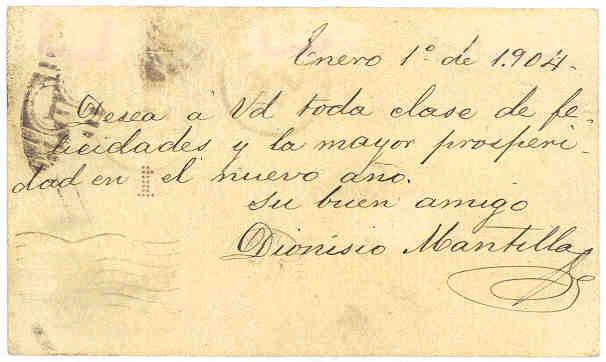 Enero 1º de 1.904.
Desea á Vd toda clase de fe-
licidades y la mayor prosperi-
dad en el nuevo año.
Su buen amigo
Dionisio Mantilla